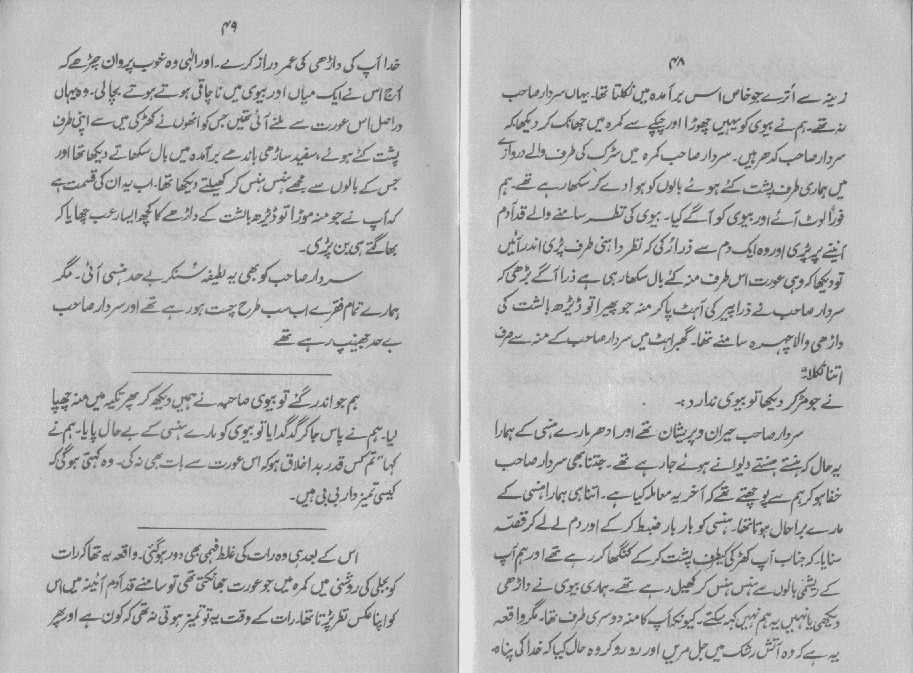 ۴۸
زینہ سے اُترے جو خاص اس برآمدہ میں نکلتا تھا۔ یہاں سردار صاحب
نہ تھے۔ ہم نے بیوی کو یہیں چھوڑا اور چپکے سے کمرہ میں جھانک کر دیکھا کہ
سردار صاحب کدھر ہیں۔ سردار صاحب کمرہ میں سڑک کی طرف والے دروازے
میں ہماری طرف پشت کئے ہوئے بالوں کو ہوا دے کر سکھا رہے تھے۔ ہم
فوراً لوٹ آئے اور بیوی کو آگے کیا۔ بیوی کی نظر سامنے والے قد آدم
آئینے پر پڑی اور وہ ایک دم سے ذرا رکی کہ نظر داہنی طرف پڑی اندر آئیں
تو دیکھا کہ وہی عورت اس طرف منہ کئے بال سکھا رہی ہے ذرا آگے بڑھی کہ
سردار صاحب نے ذرا پیر کی آہٹ پا کر منہ جو پھیرا تو ڈیڑھ بالشت کی
داڑھی والا چہرہ سامنے تھا۔ گھبراہٹ میں سردار صاحب کے منہ سے صرف
اتنا نکلا
نے جو مڑ کر دیکھا تو بیوی ندارد
سردار صاحب حیران و پریشان تھے اور ادھر مارے ہنسی کے ہمارا
یہ حال کہ ہنستے ہنستے دیوانے ہوئے جا رہے تھے۔ جتنا بھی سردار صاحب
خفا ہو کر ہم سے پوچھتے تھے کہ آخر یہ معاملہ کیا ہے۔ اتنا ہی ہمارا ہنسی کے
مارے برا حال ہوتا تھا۔ ہنسی کو بار بار ضبط کر کے اور دم لے لے کر قصّہ
سنایا۔ کہ جناب آپ کھڑکی کیطرف پشت کر کے کنگھا کر رہے تھے اور ہم آپ
کے ریشمی بالوں سے ہنس ہنس کر کھیل رہے تھے۔ ہماری بیوی نے داڑھی
دیکھی یا نہیں یہ ہم نہیں کہہ سکتے۔ کیونکہ آپ کا منہ دوسری طرف تھا۔ مگر واقعہ
یہ ہے کہ وہ آتش رشک میں جل مریں اور رو رو کر وہ حال کیا کہ خدا کی پناہ۔
۴۹
خدا آپ کی داڑھی کی عمر دراز کرے۔ اور الٰہی وہ خوب پروان چڑھے کہ
آج اس نے ایک میاں اور بیوی میں ناچاقی ہوتے ہوتے بچا لی۔ وہ یہاں
دراصل اس عورت سے ملنے آئی تھیں جس کو انھوں نے کھڑکی میں سے اپنی طرف
پشت کئے ہوئے، سفید ساڑھی باندھے برآمدہ میں بال سکھاتے دیکھا تھا اور
جس کے بالوں سے مجھے ہنس ہنس کر کھیلتے دیکھا تھا۔ اب یہ ان کی قسمت ہے
کہ آپ نے جو منہ موڑا تو ڈیڑھ بالشت کے داڑھے کا کچھ ایسا رعب چھایا کہ
بھاگتے ہی بن پڑی۔
سردار صاحب کو بھی یہ لطیفہ سنکر بے حد ہنسی آئی۔ مگر
ہمارے تمام فقرے اب سب طرح چست ہو رہے تھے اور سردار صاحب
بے حد جھینپ رہے تھے
ہم جو اندر گئے تو بیوی صاحبہ نے ہمیں دیکھ کر پھر تکیہ میں منہ چھپا
لیا۔ ہم نے پاس جا کر گدگدایا تو بیوی کو مارے ہنسی کے بے حال پایا۔ ہم نے
کہا "تم کس قدر بد اخلاق ہو کہ اس عورت سے بات بھی نہ کی۔ وہ کہتی ہو گی کہ
کیسی تمیز دار بی بی ہیں۔
اس کے بعد ہی وہ رات کی غلط فہمی بھی دور ہو گئی۔ واقعہ یہ تھا کہ رات
کو بجلی کی روشنی میں کمرہ میں جو عورت جھانکتی تھی تو سامنے قد آدم آئینہ میں اس
کو اپنا عکس نظر پڑتا تھا۔ رات کے وقت یہ تو تمیز ہوتی نہ تھی کہ کون ہے اور پھر